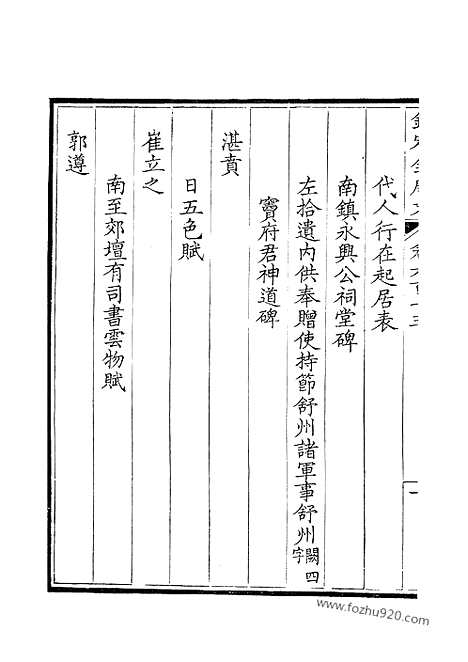 欽定全唐文 卷六百十三 一
代人行在起居表
南鎮永興公祠堂碑
左拾遺内供奉贈使持節舒州諸軍事舒州闕四字
竇府君神道碑
湛賁
日五色賦
崔立之
南至郊壇有司書雲物賦
郭遵
www.fozhu920.com